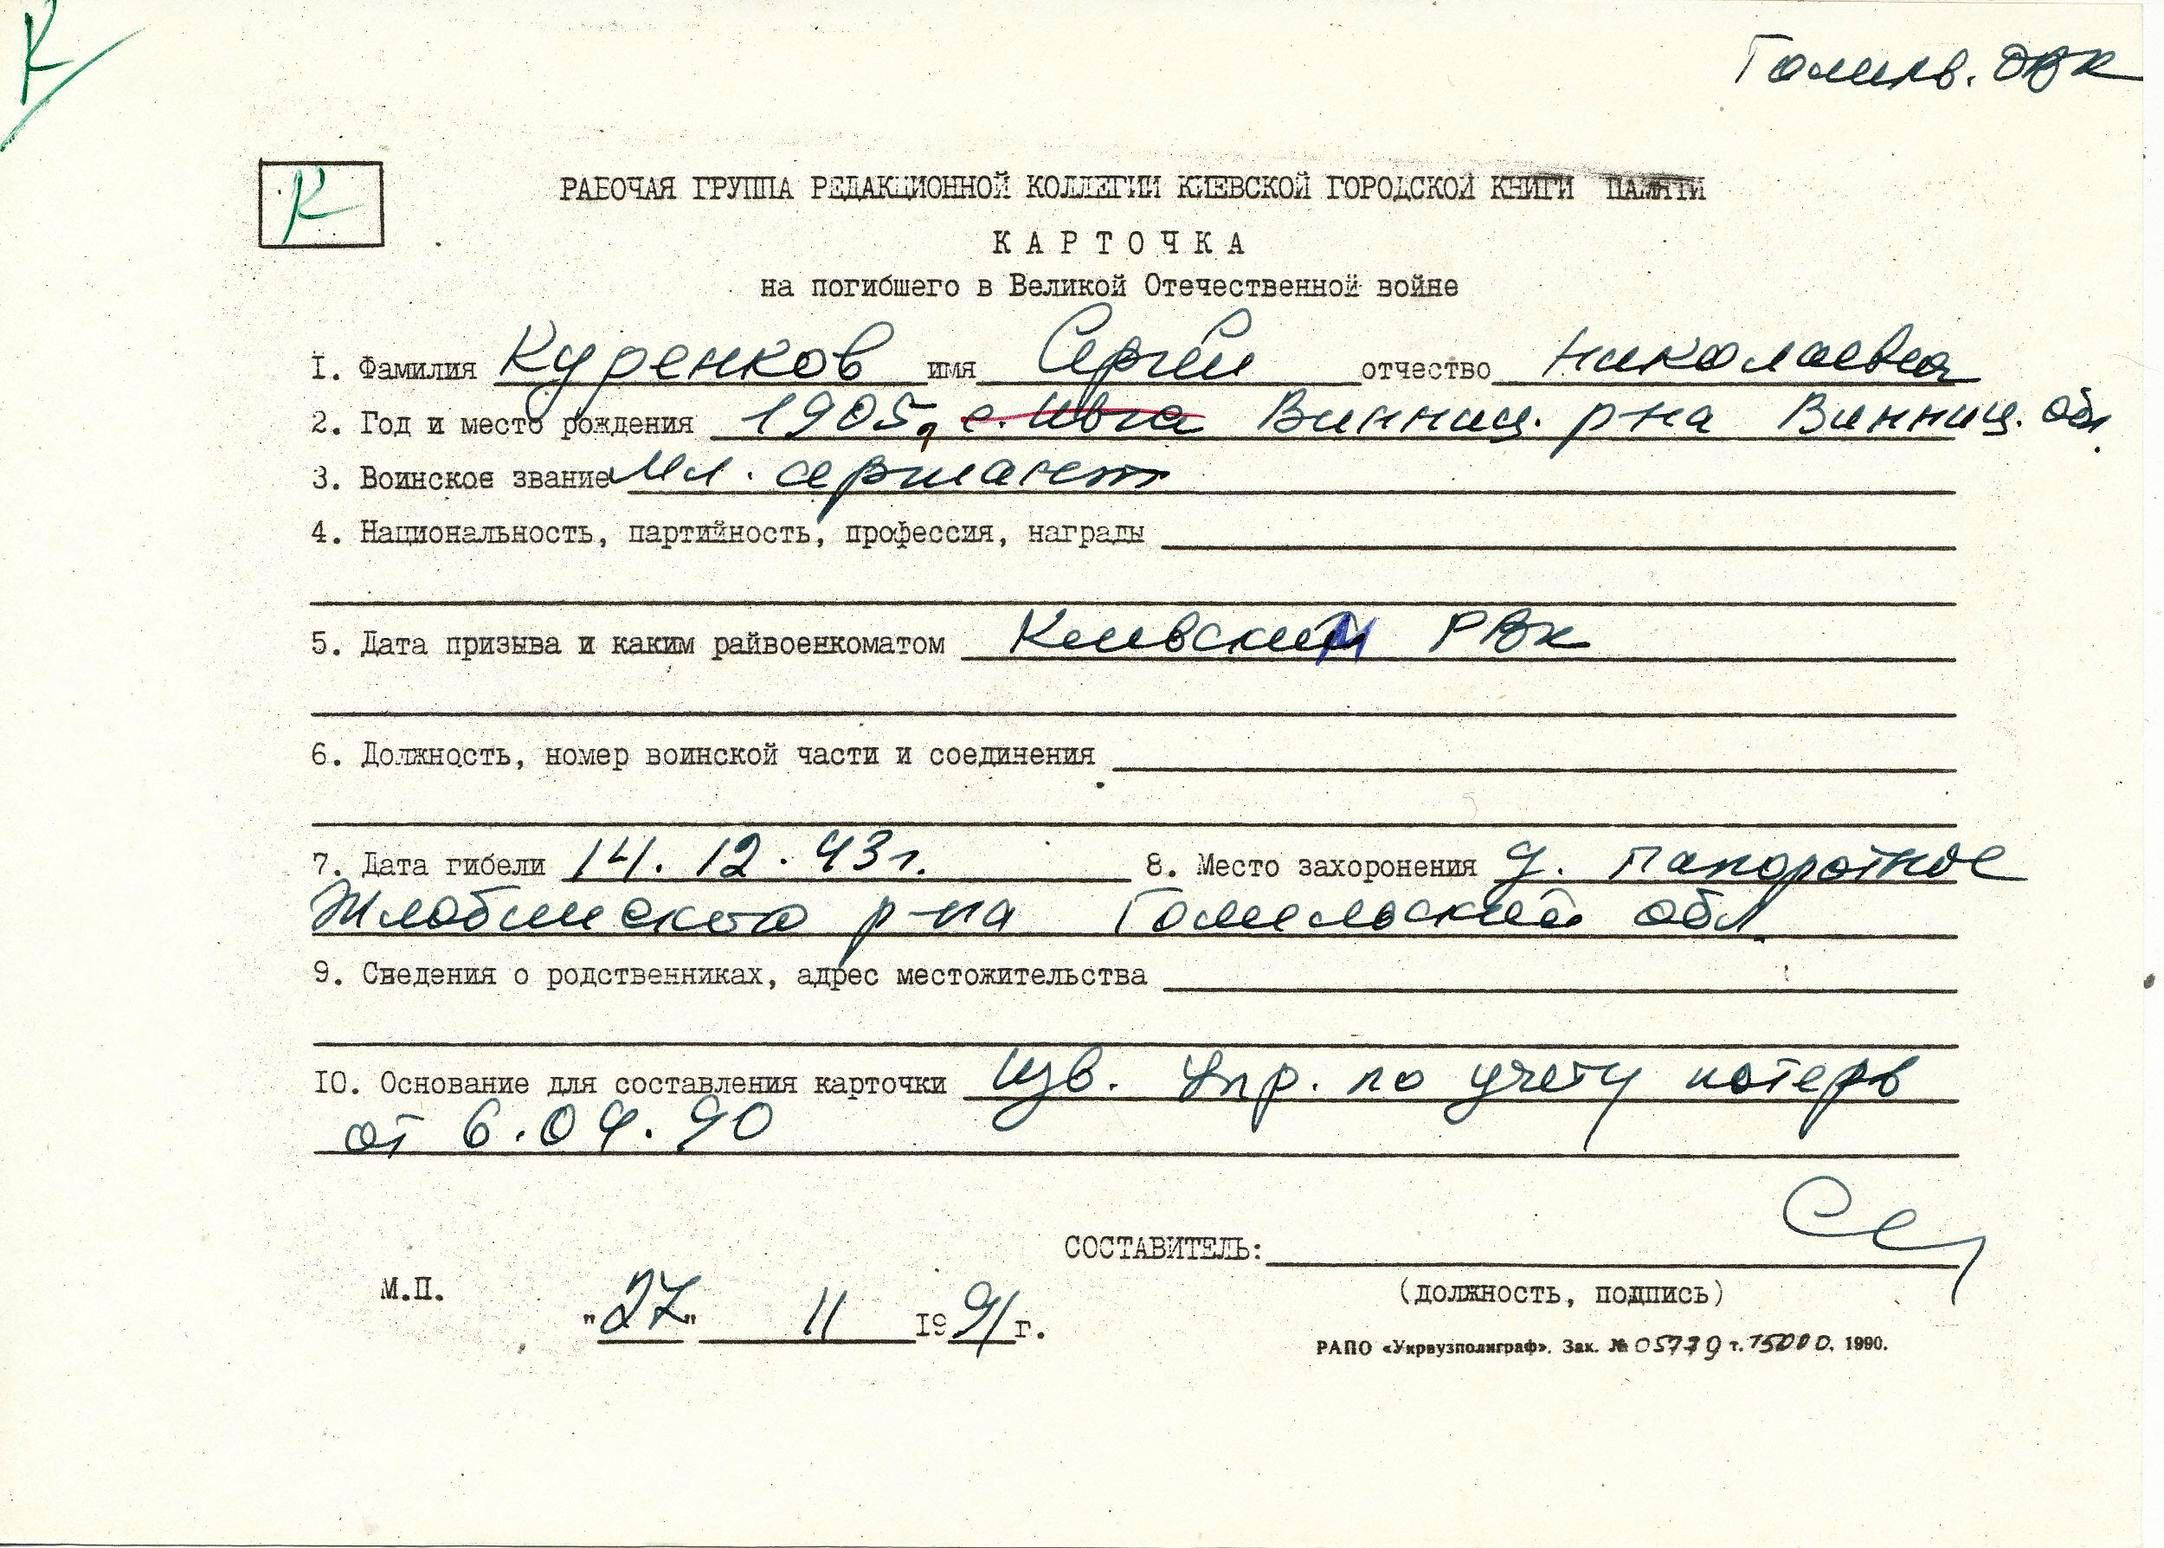 К
Гомельв. ОВК
К
РАБОЧАЯ ГРУППА РЕДАКЦИОННОЙ КОЛЛЕГИИ КИЕВСКОЙ ГОРОДСКОЙ КНИГИ ПАМЯТИ
КАРТОЧКА
на погибшего в Великой Отечественной войне
1. Фамилия Куренков имя Сергей отчество Николаевич
2. Год и место рождения 1905, с. Ивча Винниц. р-на Винниц. обл.
3. Воинское звание Мл. сержант
4. Национальность, партийность, профессия, награды
5. Дата призыва и каким райвоенкоматом Киевским РВК
6. Должность, номер воинской части и соединения
7. Дата гибели 14.12.43г. 8. Место захоронения д. Папоротное
Жлобинского р-на Гомельской обл.
9. Сведения о родственниках, адрес местожительства
10. Основание для составления карточки Изв. Упр. по учету потерь
от 6.04.90
СОСТАВИТЕЛЬ:
М.П.
(должность, подпись)
"27" 11 1991 г.
РАПО «Укрвузполиграф». Зак. № 05779 т. 15000. 1990.